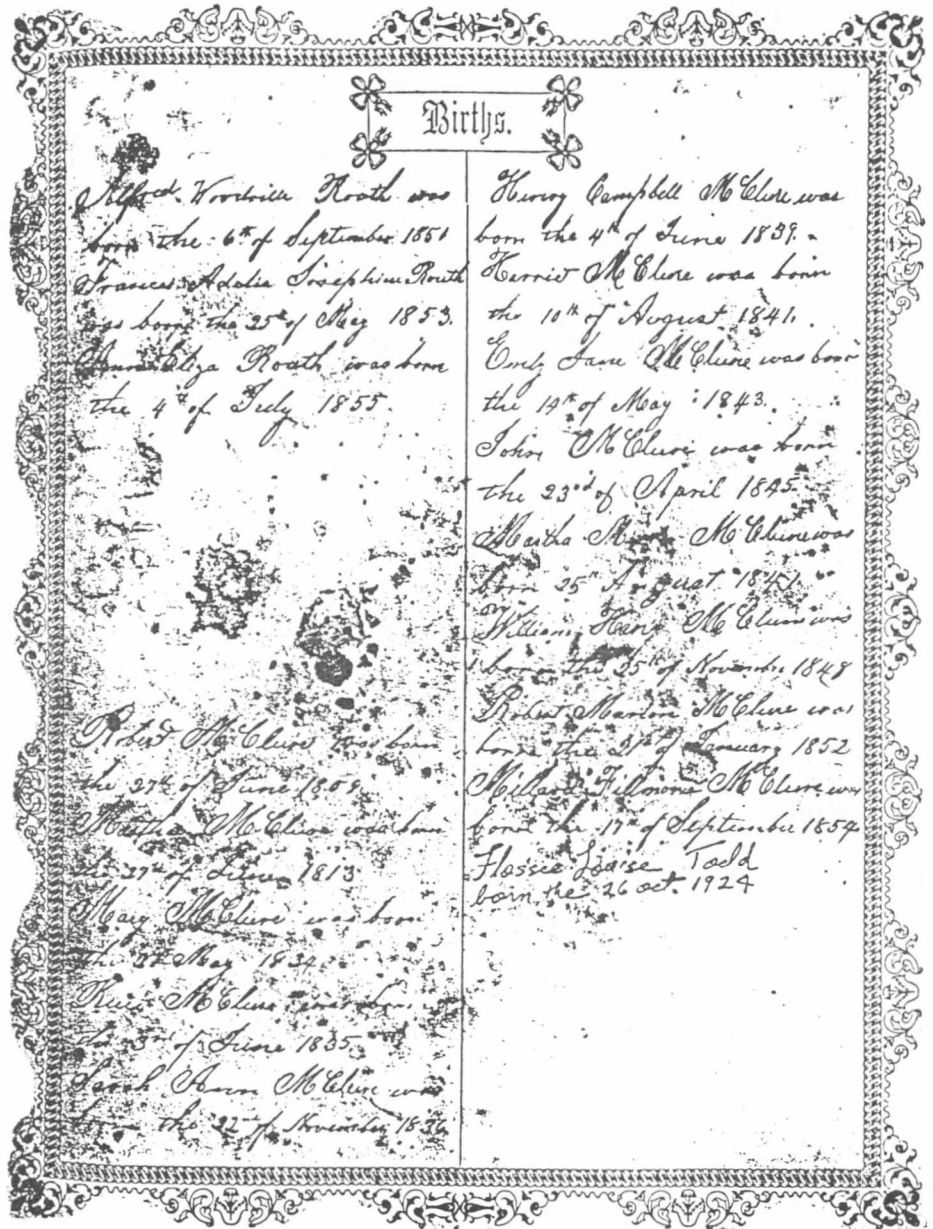 Births.
Alfred Woodville Routh was
born the 6th of September 1851
Frances Adelia Josephine Routh
was born the 25th of May 1853.
Ann Eliza Routh was born
the 4th of July 1855.
Robert McClure was born
the 27th of June 1809
Martha McClure was born
the 27th of June 1813
Mary McClure was born
the May 1834
McClure was born
the 3rd of June 1835
Sarah Ann McClure was
born the 22nd of November 1836
Henry Campbell McClure was
born the 4th of June 1839.
Harriet McClure was born
the 10th of August 1841.
Emily Jane McClure was born
the 14th of May 1843.
John McClure was born
the 23rd of April 1845
Martha McClure was
born 25th August
William Henry McClure was
born the 25th of November 1848
Robert Marion McClure was
born the 21st of January 1852
Millard Fillmore McClure was
born the 17th of September 1854
Flossie Louise Todd
born the 26 oct. 1924